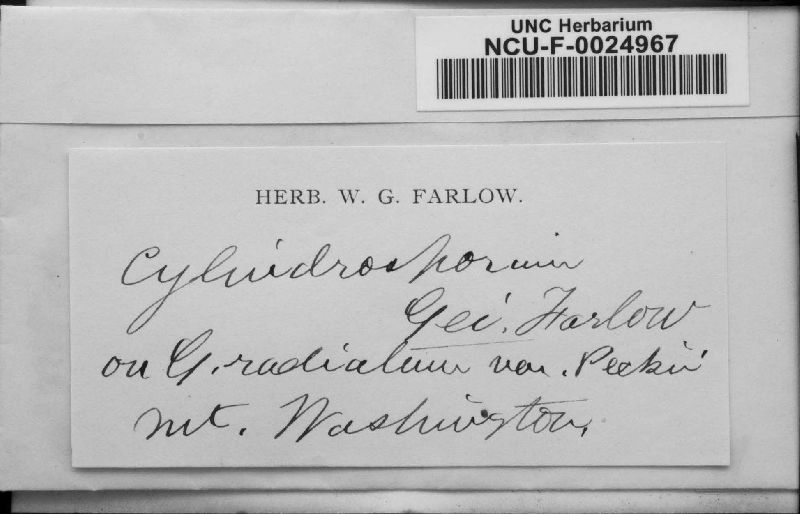 UNC Herbarium
NCU-F-0024967
HERB. W. G. FARLOW.
Cylindrosporium
Gei. Farlow
on G. radiatum var. Peckii
Mt. Washington.